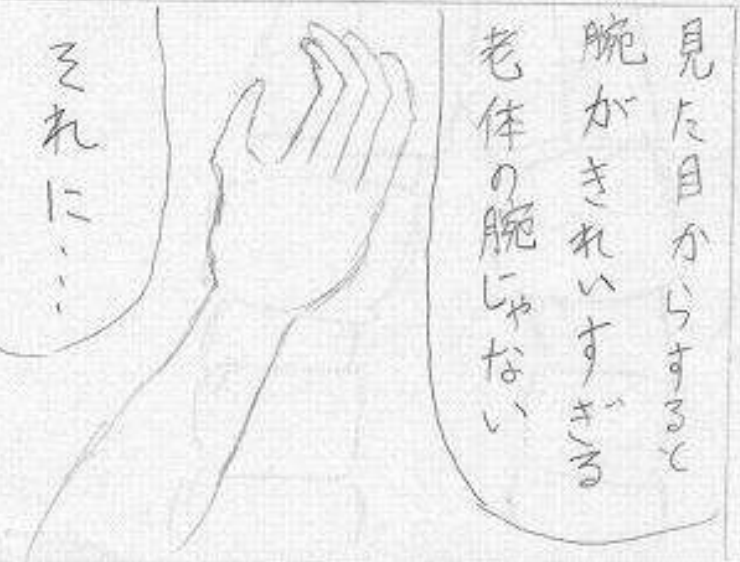 見た目からすると
腕がきれいすぎる
老体の腕じゃない
それに・・・